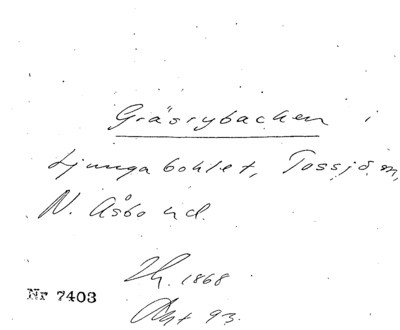 Gräsrybacken i
Ljungabohlet, Tossjö sn,
N. Åsbo hd.
Th. 1868
Nr 7403
93.